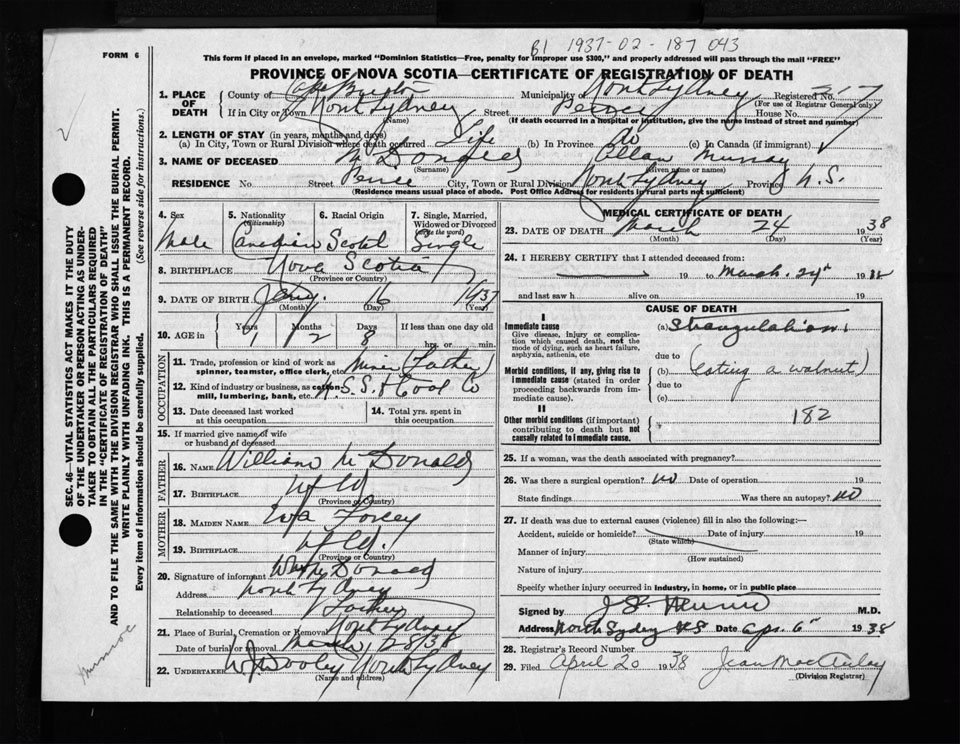 B1 1937-02-187 043
FORM 6
This form if placed in an envelope, marked "Dominion Statistics—Free, penalty for improper use $300," and properly addressed will pass through the mail "FREE"
PROVINCE OF NOVA SCOTIA—CERTIFICATE OF REGISTRATION OF DEATH
1. PLACE OF DEATH County of Cape Breton Municipality of North Sydney Registered No. 317
(For use of Registrar General only)
If in City or Town North Sydney Street Peirce House No.
(Name) (If death occurred in a hospital or institution, give the name instead of street and number)
2. LENGTH OF STAY (in years, months and days)
(a) In City, Town or Rural Division where death occurred Life (b) In Province do (c) In Canada (if immigrant)
3. NAME OF DECEASED McDonald Allan Murray
(Surname) (Given name or names)
RESIDENCE No. Street Peirce City, Town or Rural Division North Sydney Province N.S.
(Residence means usual place of abode. Post Office Address for residents in rural parts not sufficient)
4. Sex 5. Nationality (Citizenship) 6. Racial Origin 7. Single, Married, Widowed or Divorced (write the word)
Male Canadian Scotch Single
8. BIRTHPLACE Nova Scotia
(Province or Country)
9. DATE OF BIRTH Jany. 16 1937
(Month) (Day) (Year)
10. AGE in Years Months Days If less than one day old
1 2 8 hrs. or min.
OCCUPATION
11. Trade, profession or kind of work as spinner, teamster, office clerk, etc. Miner (Father)
12. Kind of industry or business, as cotton-mill, lumbering, bank, etc. N.S.S. & Coal Co
13. Date deceased last worked at this occupation 14. Total yrs. spent in this occupation
15. If married give name of wife or husband of deceased
FATHER
16. NAME William McDonald
17. BIRTHPLACE Nfld
(Province or Country)
MOTHER
18. MAIDEN NAME Eva
19. BIRTHPLACE Nfld.
(Province or Country)
20. Signature of informant Wm McDonald
Address North Sydney
Relationship to deceased Father
21. Place of Burial, Cremation or Removal North Sydney
Date of burial or removal March 28/38
22. UNDERTAKER W. J. Dooley North Sydney
(Name and address)
MEDICAL CERTIFICATE OF DEATH
23. DATE OF DEATH March 24 1938
(Month) (Day) (Year)
24. I HEREBY CERTIFY that I attended deceased from:
19 to March 24th 1938
and last saw h alive on 19
CAUSE OF DEATH
I
Immediate cause (a) Strangulation
Give disease, injury or complication which caused death, not the mode of dying, such as heart failure, asphyxia, asthenia, etc
due to
Morbid conditions, if any, giving rise to immediate cause (stated in order proceeding backwards from immediate cause).
(b) (eating a walnut)
due to
(c)
II
Other morbid conditions (if important) contributing to death but not causally related to immediate cause.
182
25. If a woman, was the death associated with pregnancy?
26. Was there a surgical operation? no Date of operation 19
State findings Was there an autopsy? no
27. If death was due to external causes (violence) fill in also the following:—
Accident, suicide or homicide? Date of injury 19
(State which)
Manner of injury
(How sustained)
Nature of injury
Specify whether injury occurred in industry, in home, or in public place
Signed by M.D.
Address North Sydney N S Date Apr. 6th 1938
28. Registrar's Record Number
29. Filed April 20 1938 Jean MacAulay
(Division Registrar)
SEC. 46—VITAL STATISTICS ACT MAKES IT THE DUTY
OF THE UNDERTAKER OR PERSON ACTING AS UNDER-
TAKER TO OBTAIN ALL THE PARTICULARS REQUIRED
IN THE "CERTIFICATE OF REGISTRATION OF DEATH"
AND TO FILE THE SAME WITH THE DIVISION REGISTRAR WHO SHALL ISSUE THE BURIAL PERMIT.
WRITE PLAINLY WITH UNFADING INK. THIS IS A PERMANENT RECORD.
Every item of information should be carefully supplied. (See reverse side for instructions.)
Munroe